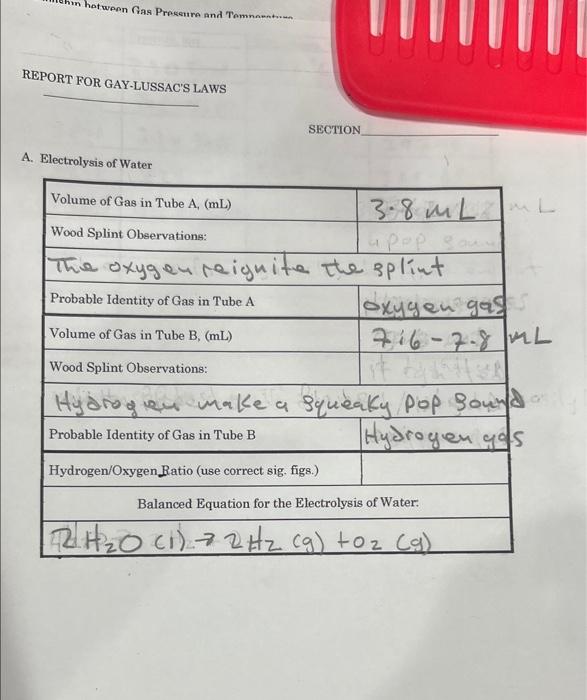 between Gas Pressure and
REPORT FOR GAY-LUSSAC'S LAWS
SECTION
A. Electrolysis of Water
Volume of Gas in Tube A, (mL) 3.8 mL mL
Wood Splint Observations: a pop
The oxygen reignite the splint
Probable Identity of Gas in Tube A oxygen gas
Volume of Gas in Tube B, (mL) 7.6 - 7.8 mL
Wood Splint Observations:
Hydrogen make a squeaky pop sound
Probable Identity of Gas in Tube B Hydrogen gas
Hydrogen/Oxygen Ratio (use correct sig. figs.)
Balanced Equation for the Electrolysis of Water:
2H2O (l) → 2H2 (g) + O2 (g)